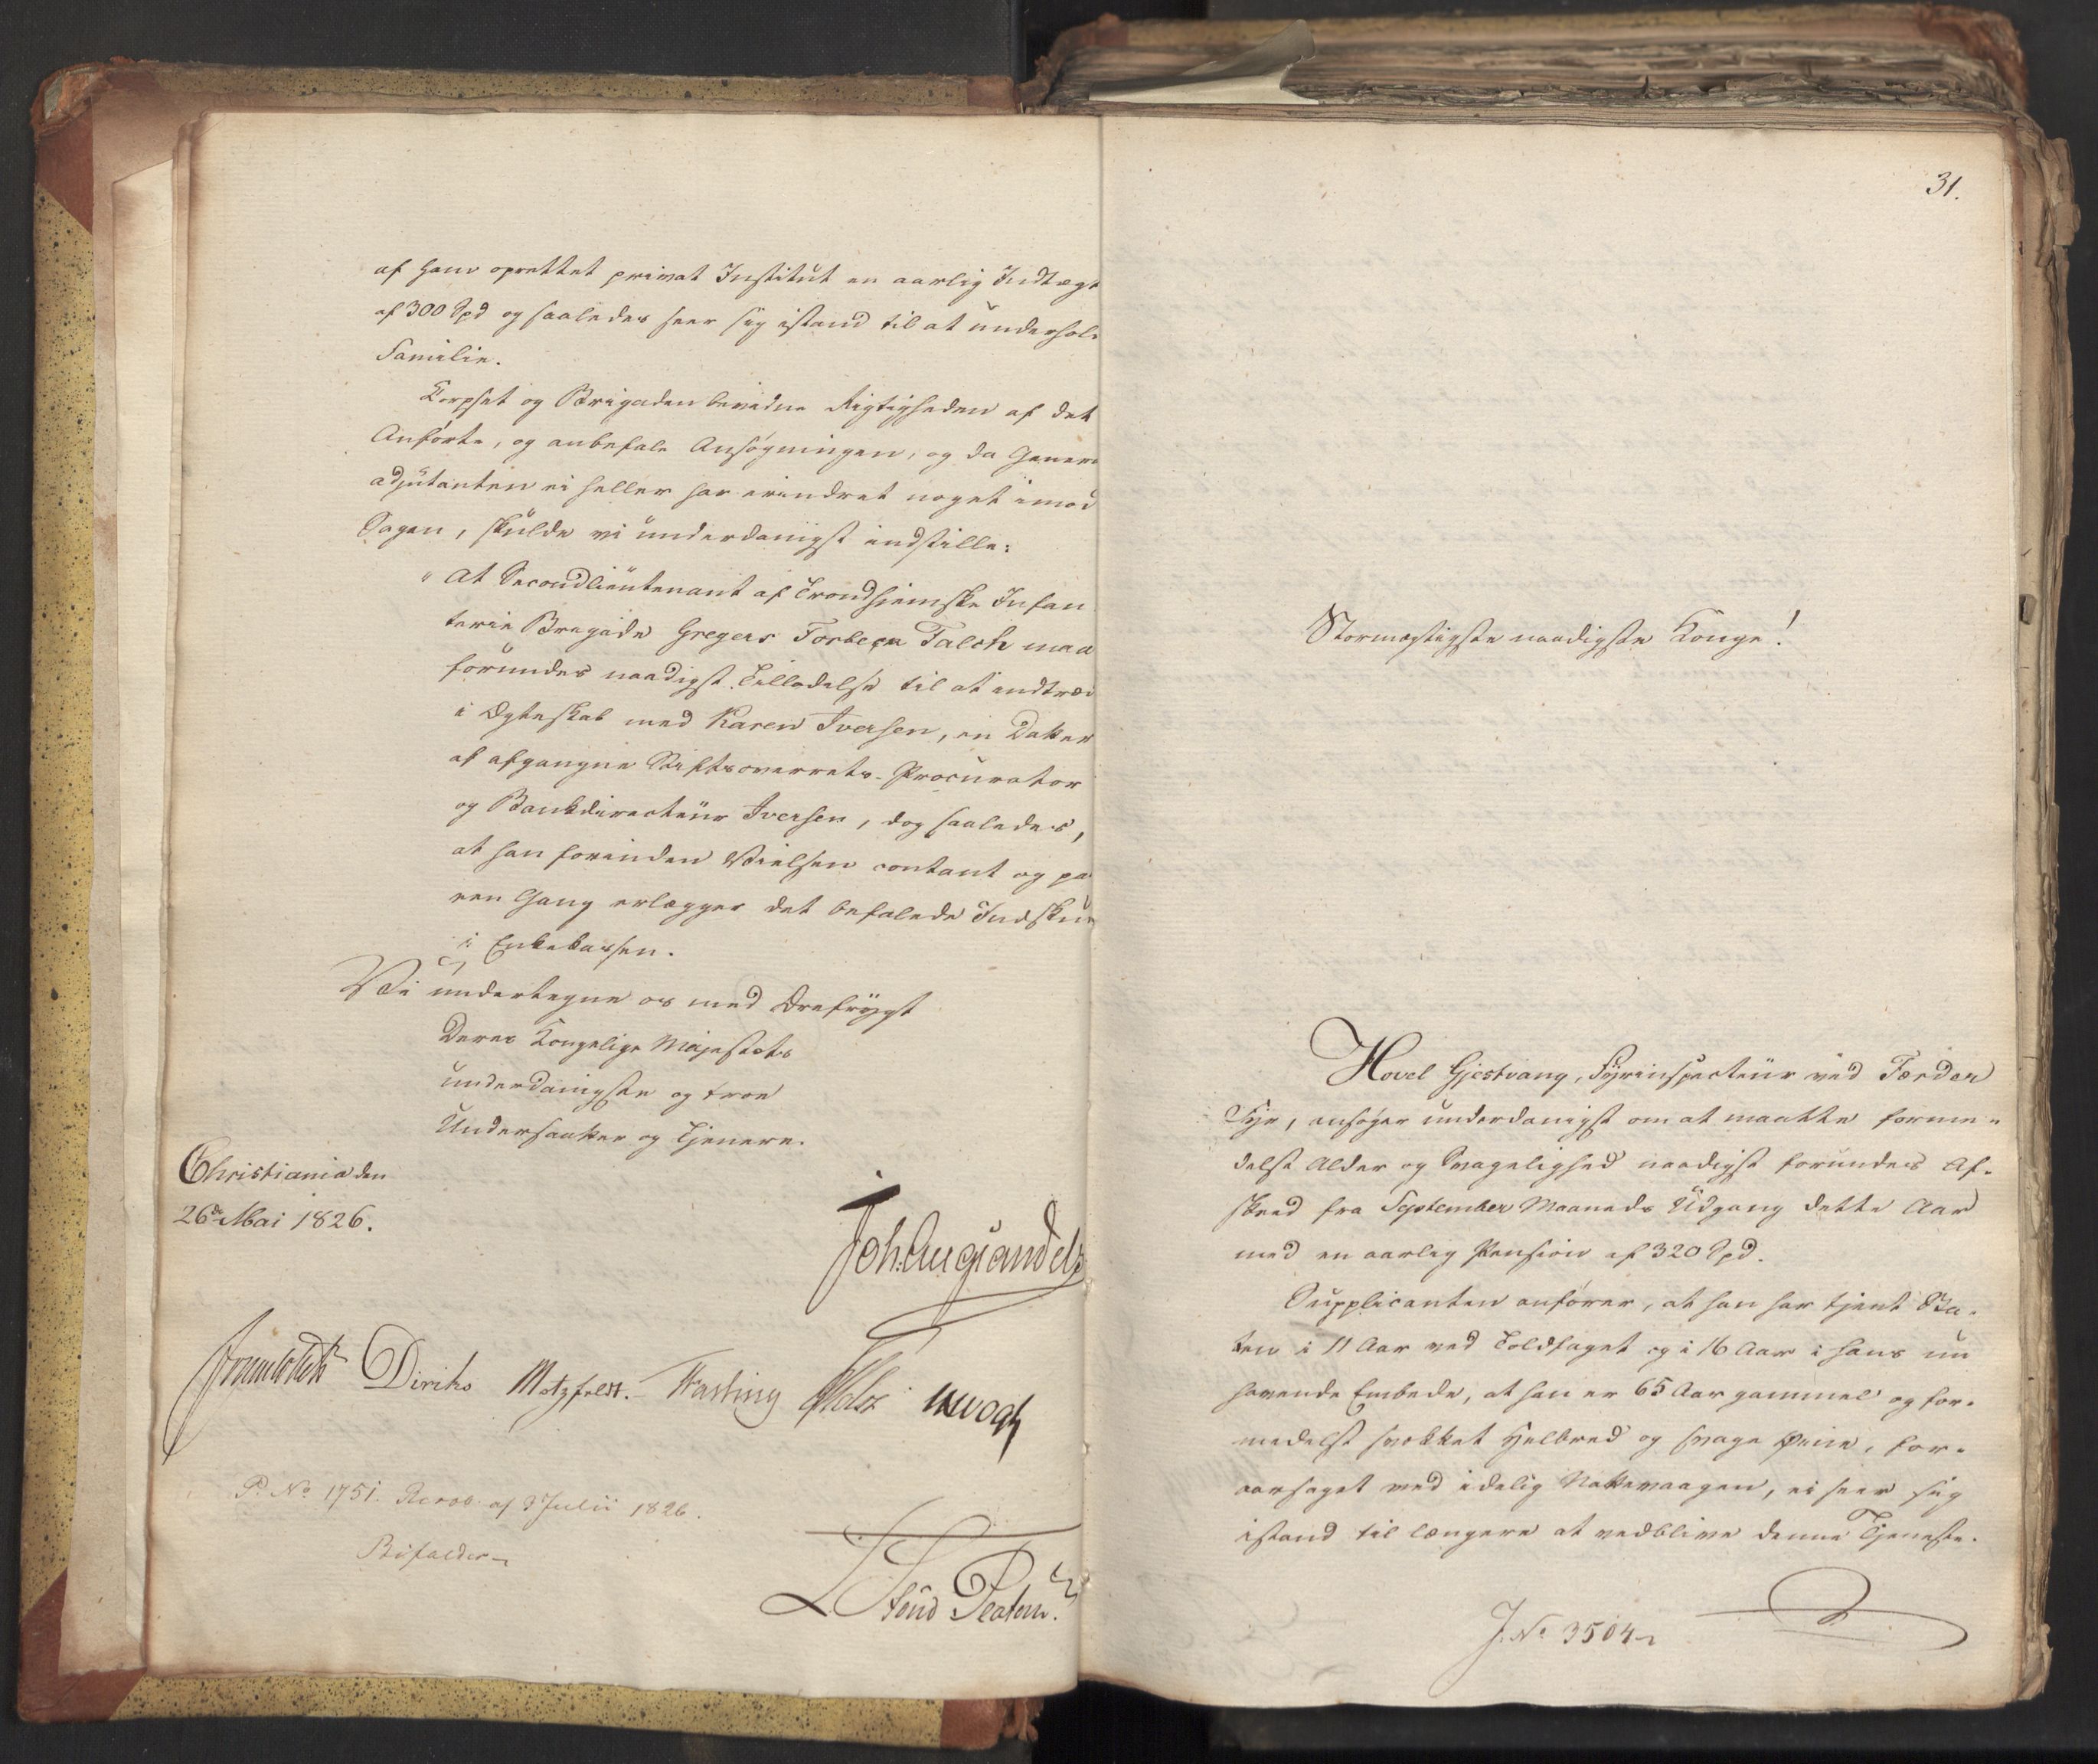 af ham oprettet privat Institut en aarlig Indtægt
af 300 Spd og saaledes seer sig istand til at underhol
Familie.
Korpset og Brigaden bevidne Rigtigheden af det
Anførte, og anbefale Ansøgningen, og da Genera
adjutanten ei heller har erindret noget imod
Sagen, skulde vi underdanigst indstille:
"At Secondlieutenant af Trondhjemske Infan
terie Brigade Gregers Torbern Falch maa
forundes naadigst Tilladelse til at indtræd
i Ægteskab med Karen Iversen, en Datter
af afgangne Stiftsoverrets-Procurator
og Bankdirecteur Iversen, dog saaledes,
at han forinden Vielsen contant og paa
een Gang erlægger det befalede Indskud
i Enkekassen.
Vi undertegne os med Ærefrygt
Deres Kongelige Majestæts
underdanigste og troe
Undersaatter og Tjenere.
Christiania den
26de Mai 1826.
Joh. Aug. Sandels
Diriks Motzfeldt. Fasting Holst
P. No 1751. Resol. af 3 Julii 1826.
Bifaldes
31.
Stormægtigste naadigste Konge!
Hovel Gjestvang, Fyrinspecteur ved Færder
Fyr, ansøger underdanigst om at maatte forme-
delst Alder og Svagelighed naadigst forundes Af-
skeed fra September Maaneds Udgang dette Aar
med en aarlig Pension af 320 Spd.
Supplicanten anfører, at han har tjent Sta-
ten i 11 Aar ved Toldfaget og i 16 Aar i hans nu
havende Embede, at han er 65 Aar gammel og for-
medelst svækket Helbred og svage Øine, for-
aarsaget ved idelig Nattevaagen, ei seer sig
istand til længere at vedblive denne Tjeneste.
J. No 3504